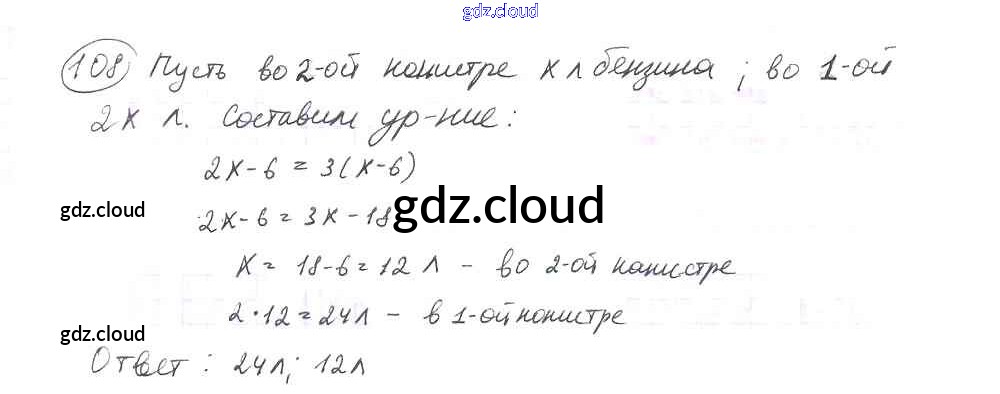 gdz.cloud
108) Пусть во 2-ой канистре х л бензина ; во 1-ой
2х л. Составим ур-ние:
2х-6 = 3(х-6)
gdz.cloud 2х-6 = 3х-18 gdz.cloud
х = 18-6 = 12 л - во 2-ой канистре
2·12 = 24л - в 1-ой канистре
gdz.cloud
Ответ : 24л; 12л